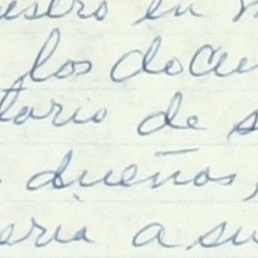 uestro en
los docu
tario de s
dueños,
eria a su